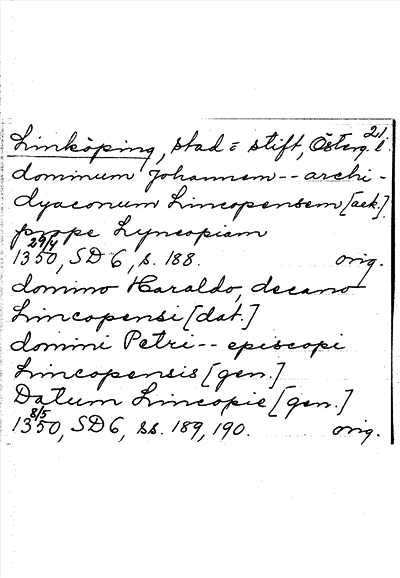 21.
Linköping, stad = stift, Österg. l.
dominum Johannem -- archi-
dyaconum Lincopensem [ack.]
prope Lyncopiam
29/4
1350, SD 6, s. 188. orig.
domino Haraldo, decano
Lincopensi [dat.]
domini Petri -- episcopi
Lincopensis [gen.]
Datum Lincopie [gen.]
8/5
1350, SD 6, ss. 189, 190. orig.